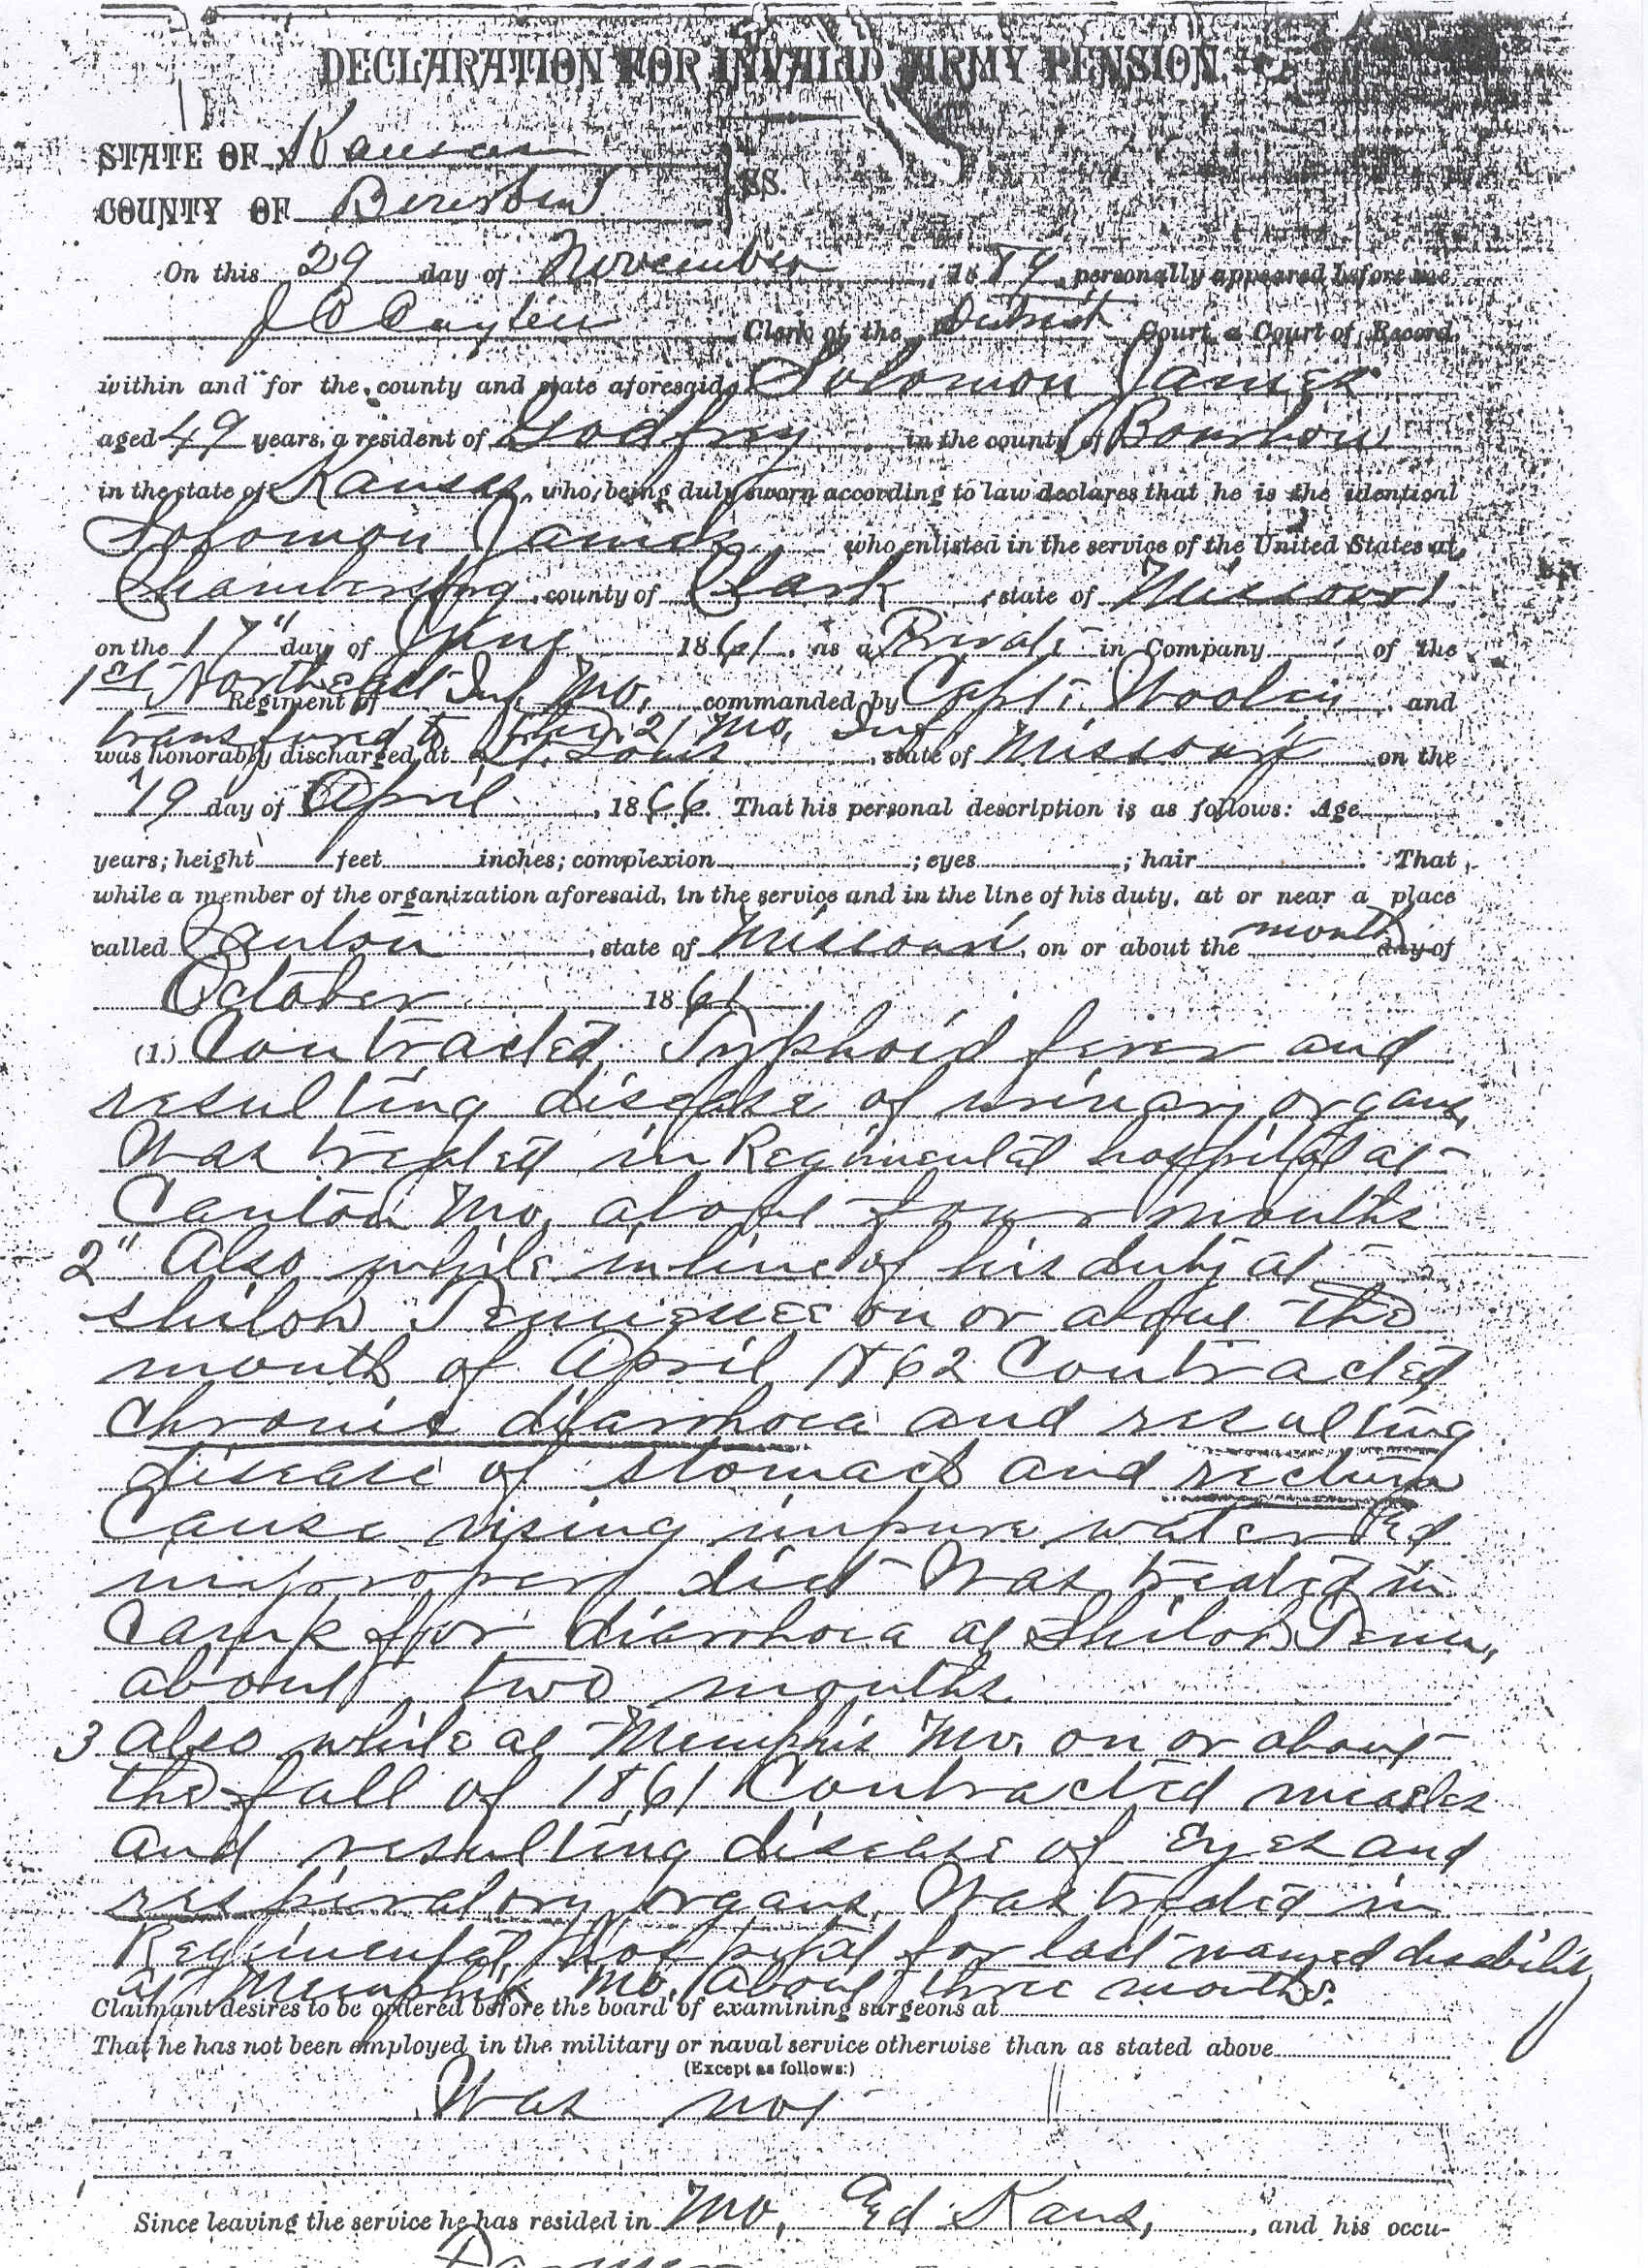 DECLARATION FOR INVALID ARMY PENSION.
STATE OF Kansas
COUNTY OF Bourbon } SS.
On this 29 day of November, 1889, personally appeared before me
J C Clerk of the District Court, a Court of Record
within and for the county and state aforesaid, Solomon James
aged 49 years, a resident of Godfrey in the county of Bourbon
in the state of Kansas, who, being duly sworn according to law declares that he is the identical
Solomon James, who enlisted in the service of the United States at
Chambersburg, county of Clark, state of Missouri
on the 17" day of June 1861, as a Private in Company of the
1st North east Inf Mo,
Regiment of commanded by Capt. and
transfured to 21 Mo, Inf
was honorably discharged at St. Louis, state of Missouri on the
19 day of April, 1866. That his personal description is as follows: Age
years; height feet inches; complexion ; eyes ; hair . That
while a member of the organization aforesaid, in the service and in the line of his duty, at or near a place
called Canton, state of Missouri, on or about the month day of
October 1861
(1.) Contracted Typhoid fever and
resulting disease of urinary organs,
Was treated in Regimental hospital at
Canton Mo, about four months
2" Also while in line of his duty at
Shiloh Tennessee on or about the
month of April 1862 Contracted
Chronic diarrhoea and resulting
disease of stomach and rectum
Cause using impure water &d
improper diet Was treated in
Camp for diarrhoea at Shiloh Tenn,
about two months.
3 Also while at Memphis Mo. on or about
the fall of 1861 Contracted measles
and resulting disease of Eyes and
respiratory organs, Was treated in
Regimental Hospital for last named disability
at Memphis Mo. about three months.
Claimant desires to be ordered before the board of examining surgeons at
That he has not been employed in the military or naval service otherwise than as stated above
(Except as follows:)
Was not
Since leaving the service he has resided in Mo, &d Kans, , and his occu-